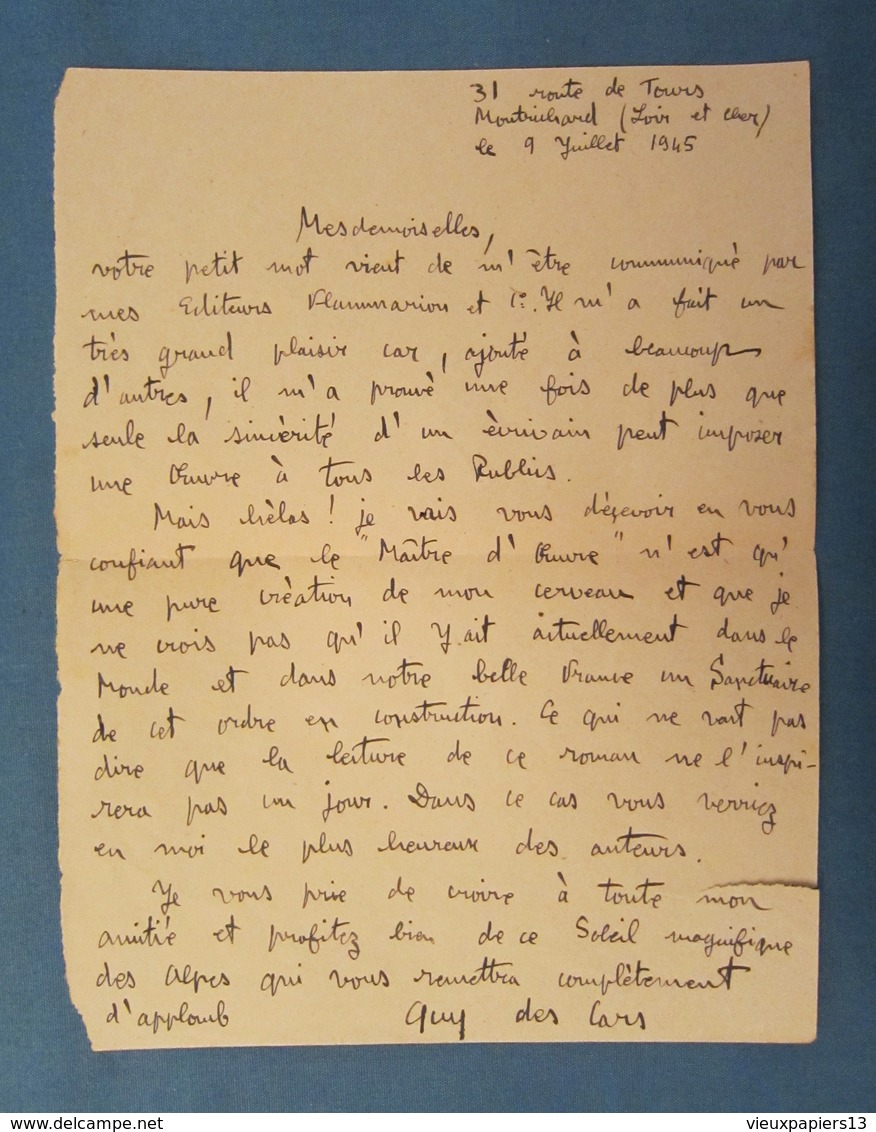 31 route de Tours
Montrichard (Loir et Cher)
le 9 Juillet 1945
Mesdemoiselles,
votre petit mot vient de m'être communiqué par
mes Editeurs Flammarion et Cie. Il m'a fait un
très grand plaisir car, ajouté à beaucoup
d'autres, il m'a prouvé une fois de plus que
seule la sincérité d'un écrivain peut imposer
une Œuvre à tous les Publics.
Mais hélas ! je vais vous déçevoir en vous
confiant que le "Maître d'Œuvre" n'est qu'
une pure création de mon cerveau et que je
ne crois pas qu'il y ait actuellement dans le
Monde et dans notre belle France un Sanctuaire
de cet ordre en construction. Ce qui ne veut pas
dire que la lecture de ce roman ne l'inspi-
rera pas un jour. Dans ce cas vous verriez
en moi le plus heureux des auteurs.
Je vous prie de croire à toute mon
amitié et profitez bien de ce Soleil magnifique
des Alpes qui vous remettra complètement
d'applomb Guy des Cars
vieuxpapiers13